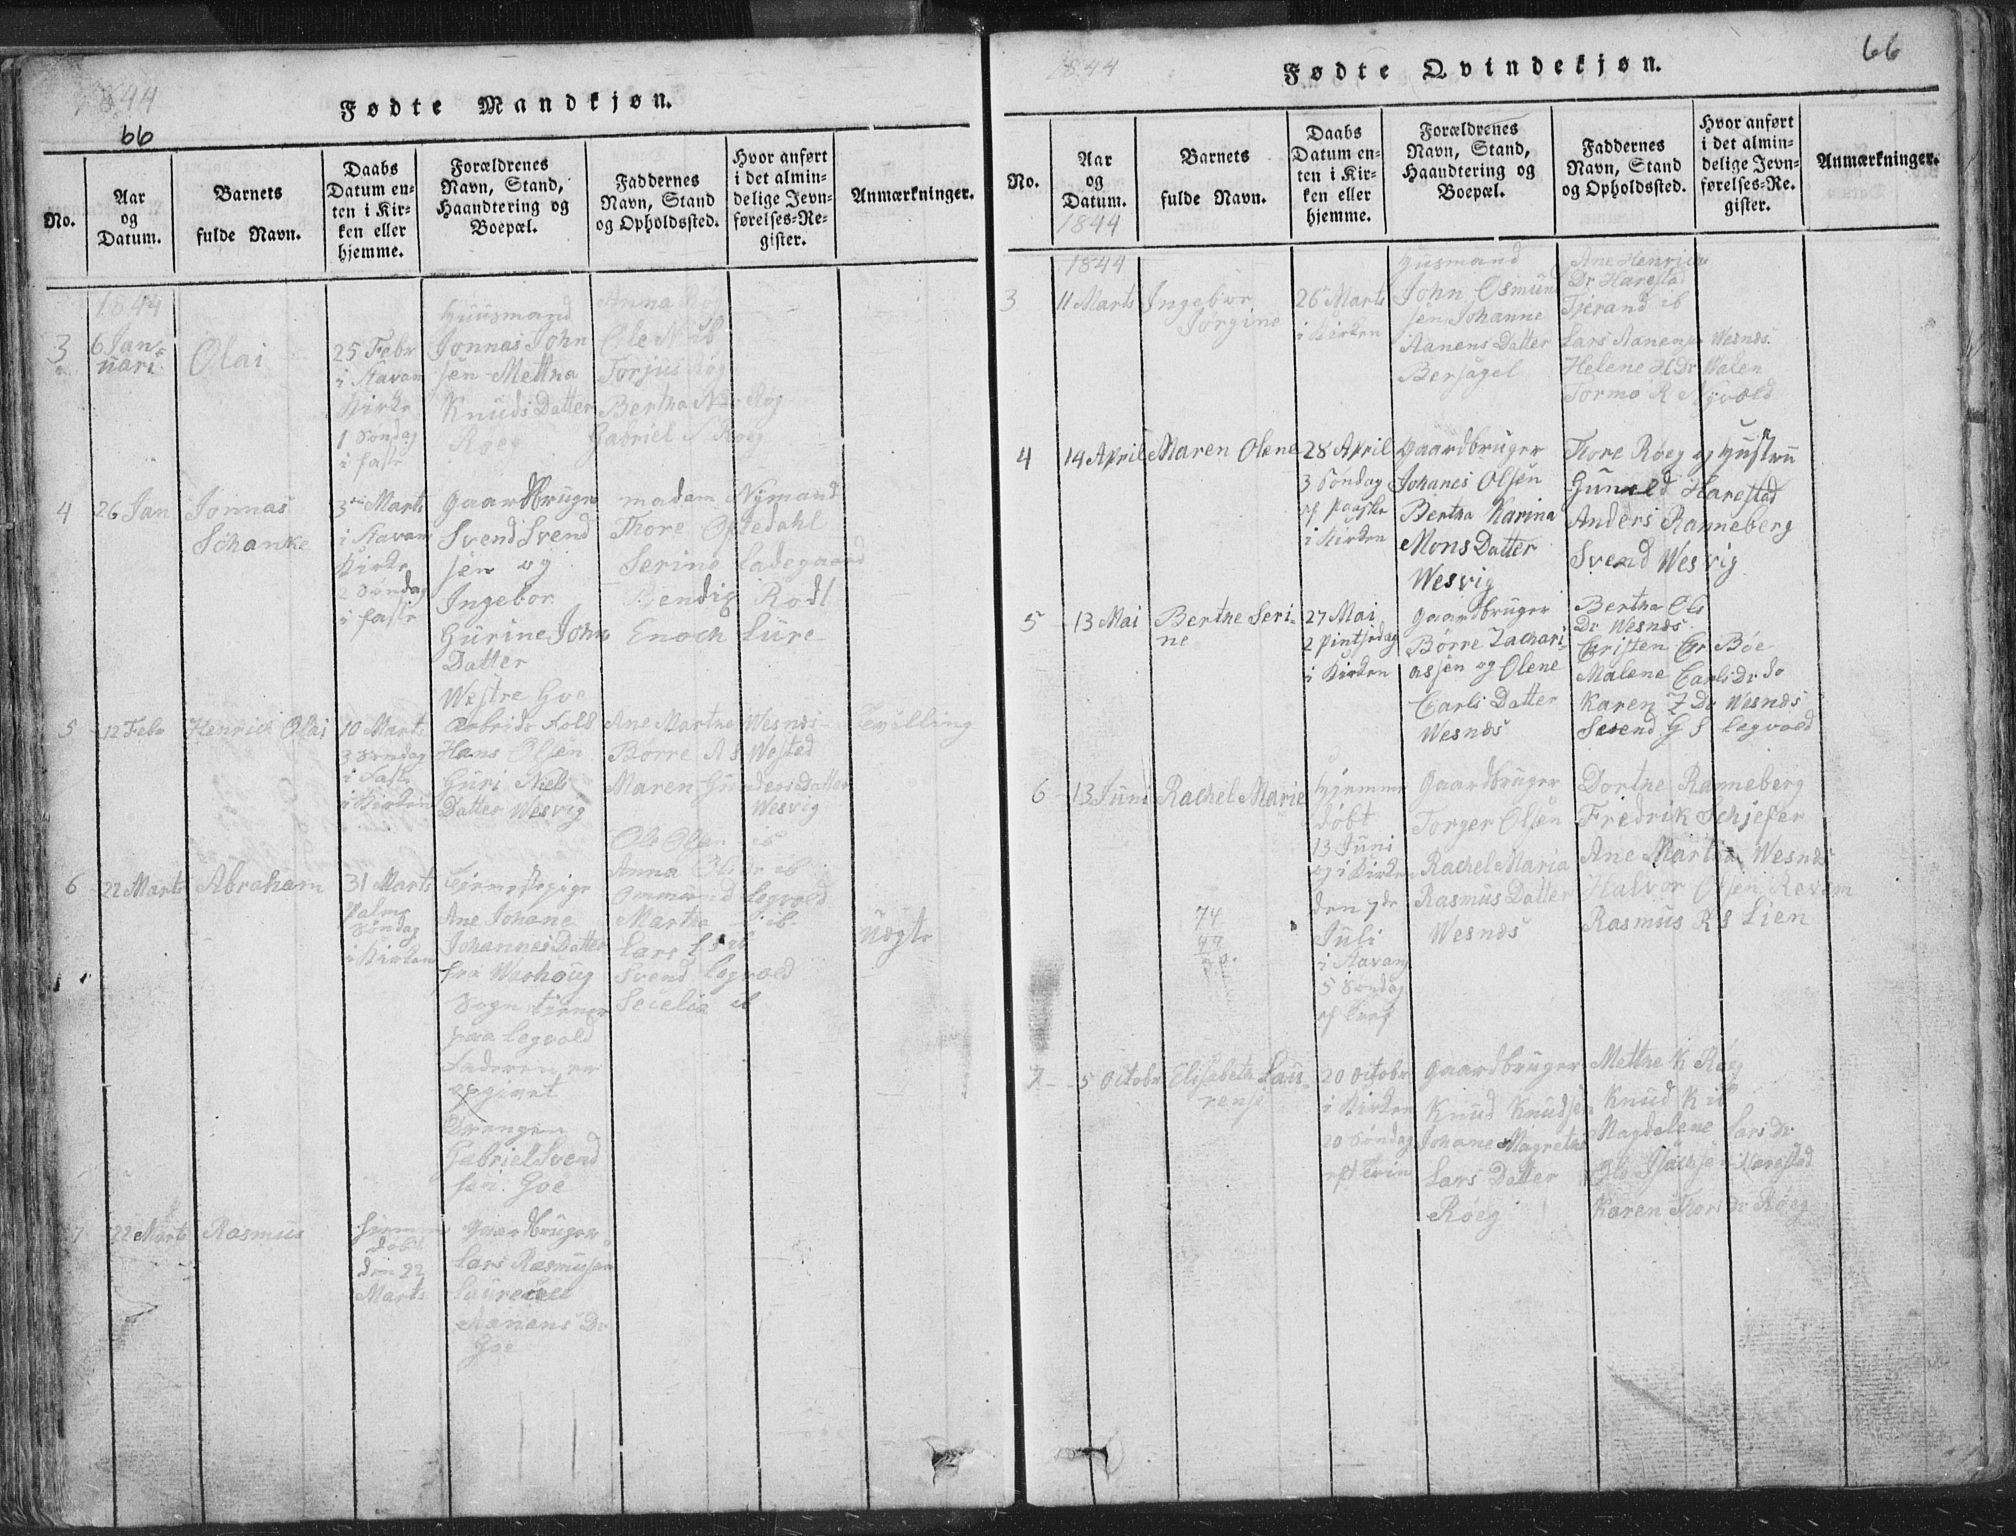 1844
Fødte Mandkjøn.
66
No.
Aar
og
Datum.
Barnets
fulde Navn.
Daabs
Datum en-
ten i Kir-
ken eller
hjemme.
Forældrenes
Navn, Stand,
Haandtering og
Boepæl.
Faddernes
Navn, Stand
og Opholdssted.
Hvor anført
i det almin-
delige Jevn-
førelses-Re-
gister.
Anmærkninger.
1844
3
6 Jan-
uari
Olai
25 Febr
i Stavan
Kirke
1 Søndag
i faste
Huusmand
Jonnas John
sen Mettha
Knuds Datter
Røeg
Anna Røg
Ole N ib
Torjus Røg
Bertha N Dr Røg
Gabriel S Røeg
4
26 Jan
Jonnas
Schanke
3die Marts
i Stavan
Kirke
2 Søndag
i faste
Gaardbruger
Svend Svend
sen og
Ingebor
Gurine John
Datter
Westre Goe
madam Nymand
Thore Oftedahl
Serine Ladegaard
Bendig Rodl
Enoch Lure
5
12 Febr
Henrick Olai
10 Marts
3 Søndag
i Faste
i Kirken
Arbeids Fold
Hans Olsen
Guri Niels
Datter Wesvig
Ane Martha Wesnes
Børre A S Westad
Maren Gunders Datter
Wesvig
Ole Olsen ib
Tevilling
6
22 Marts
Abraham
31 Marts
Palme
Søndag
i Kirken
Tienestepige
Ane Johane
Johannes Datter
fra Warhoug
Sogn tiener
paa Legvold
Faderen er
opgivet
Drengen
Gabriel Svend
sen Goe
Anna Olser ib
Ommund Legvold
Martha ib
Lars L S ib
Svend Legvold
Secelia ib
Uægte
7
22 Marts
Rasmus
hiemme
døbt
den 22
Marts
Gaardbruger
Lars Rasmusen
Aanens Dr
Goe
1844
Fødte Qvindekjøn.
66
No.
Aar
og
Datum.
1844
Barnets
fulde Navn.
Daabs
Datum en-
ten i Kir-
ken eller
hjemme.
Forældrenes
Navn, Stand,
Haandtering og
Boepæl.
Faddernes
Navn, Stand
og Opholdssted.
Hvor anført
i det almin-
delige Jevn-
førelses-Re-
gister.
Anmærkninger.
1844
3
11 Marts
Ingebor
Jørgine
26 Marts
i Kirken
Husmand
John Osmund
sen Johanne
Aanens Datter
Bersagel
Ane Henrics
Dr Harestad
Tjerand ib
Lars Aanensen Wesnes
Helene H Dr Valen
Tormo R Nyvold
4
14 April
Maren Olene
28 April
3 Søndag
ef Paaske
i Kirken
Gaardbruger
Johanes Olsen
Bertha Karina
Mons Datter
Wesvig
Tore Røeg og Hustru
Gunild Harestad
Anders Ranneberg
Svend Wesvig
5
13 Mai
Berthe Seri-
ne
27 Mai
2 Pintsedag
i Kirken
Gaardbruger
Børre Zachari-
assen og Olene
Carls Datter
Wesnes
Bertha Ols
Dr Wesnes
Christen Chr Bøe
Malene Carls Dr do
Karen Z Dr Wesnes
Svend G S Legvold
6
13 Juni
Rachel Marie
74
44
30.
Hjemme
døbt
13 Juni
og i Kirken
den 7de
Juli
i Stavan
5 Søndag
ef Tref
Gaardbruger
Torger Olsen
Rachel Maria
Rasmus Datter
Wesnes
Dorthe Ranneberg
Fredrik Schjefer
Ane Martha Wesnes
Halvor Olsen Revem
Rasmus R S Lien
7
5 Octobr
Elisabeth Lau-
rense
20 Octobr
i Kirken
20 Søndag
eft Trin
Gaardbruger
Knud Knudsen
Johane Magretha
Lars Datter
Røeg
Mettha K Røg
Knud K ib
Magdalene Lars Dr
Ole Isachsen Harestad
Karen Tors Dr Røeg